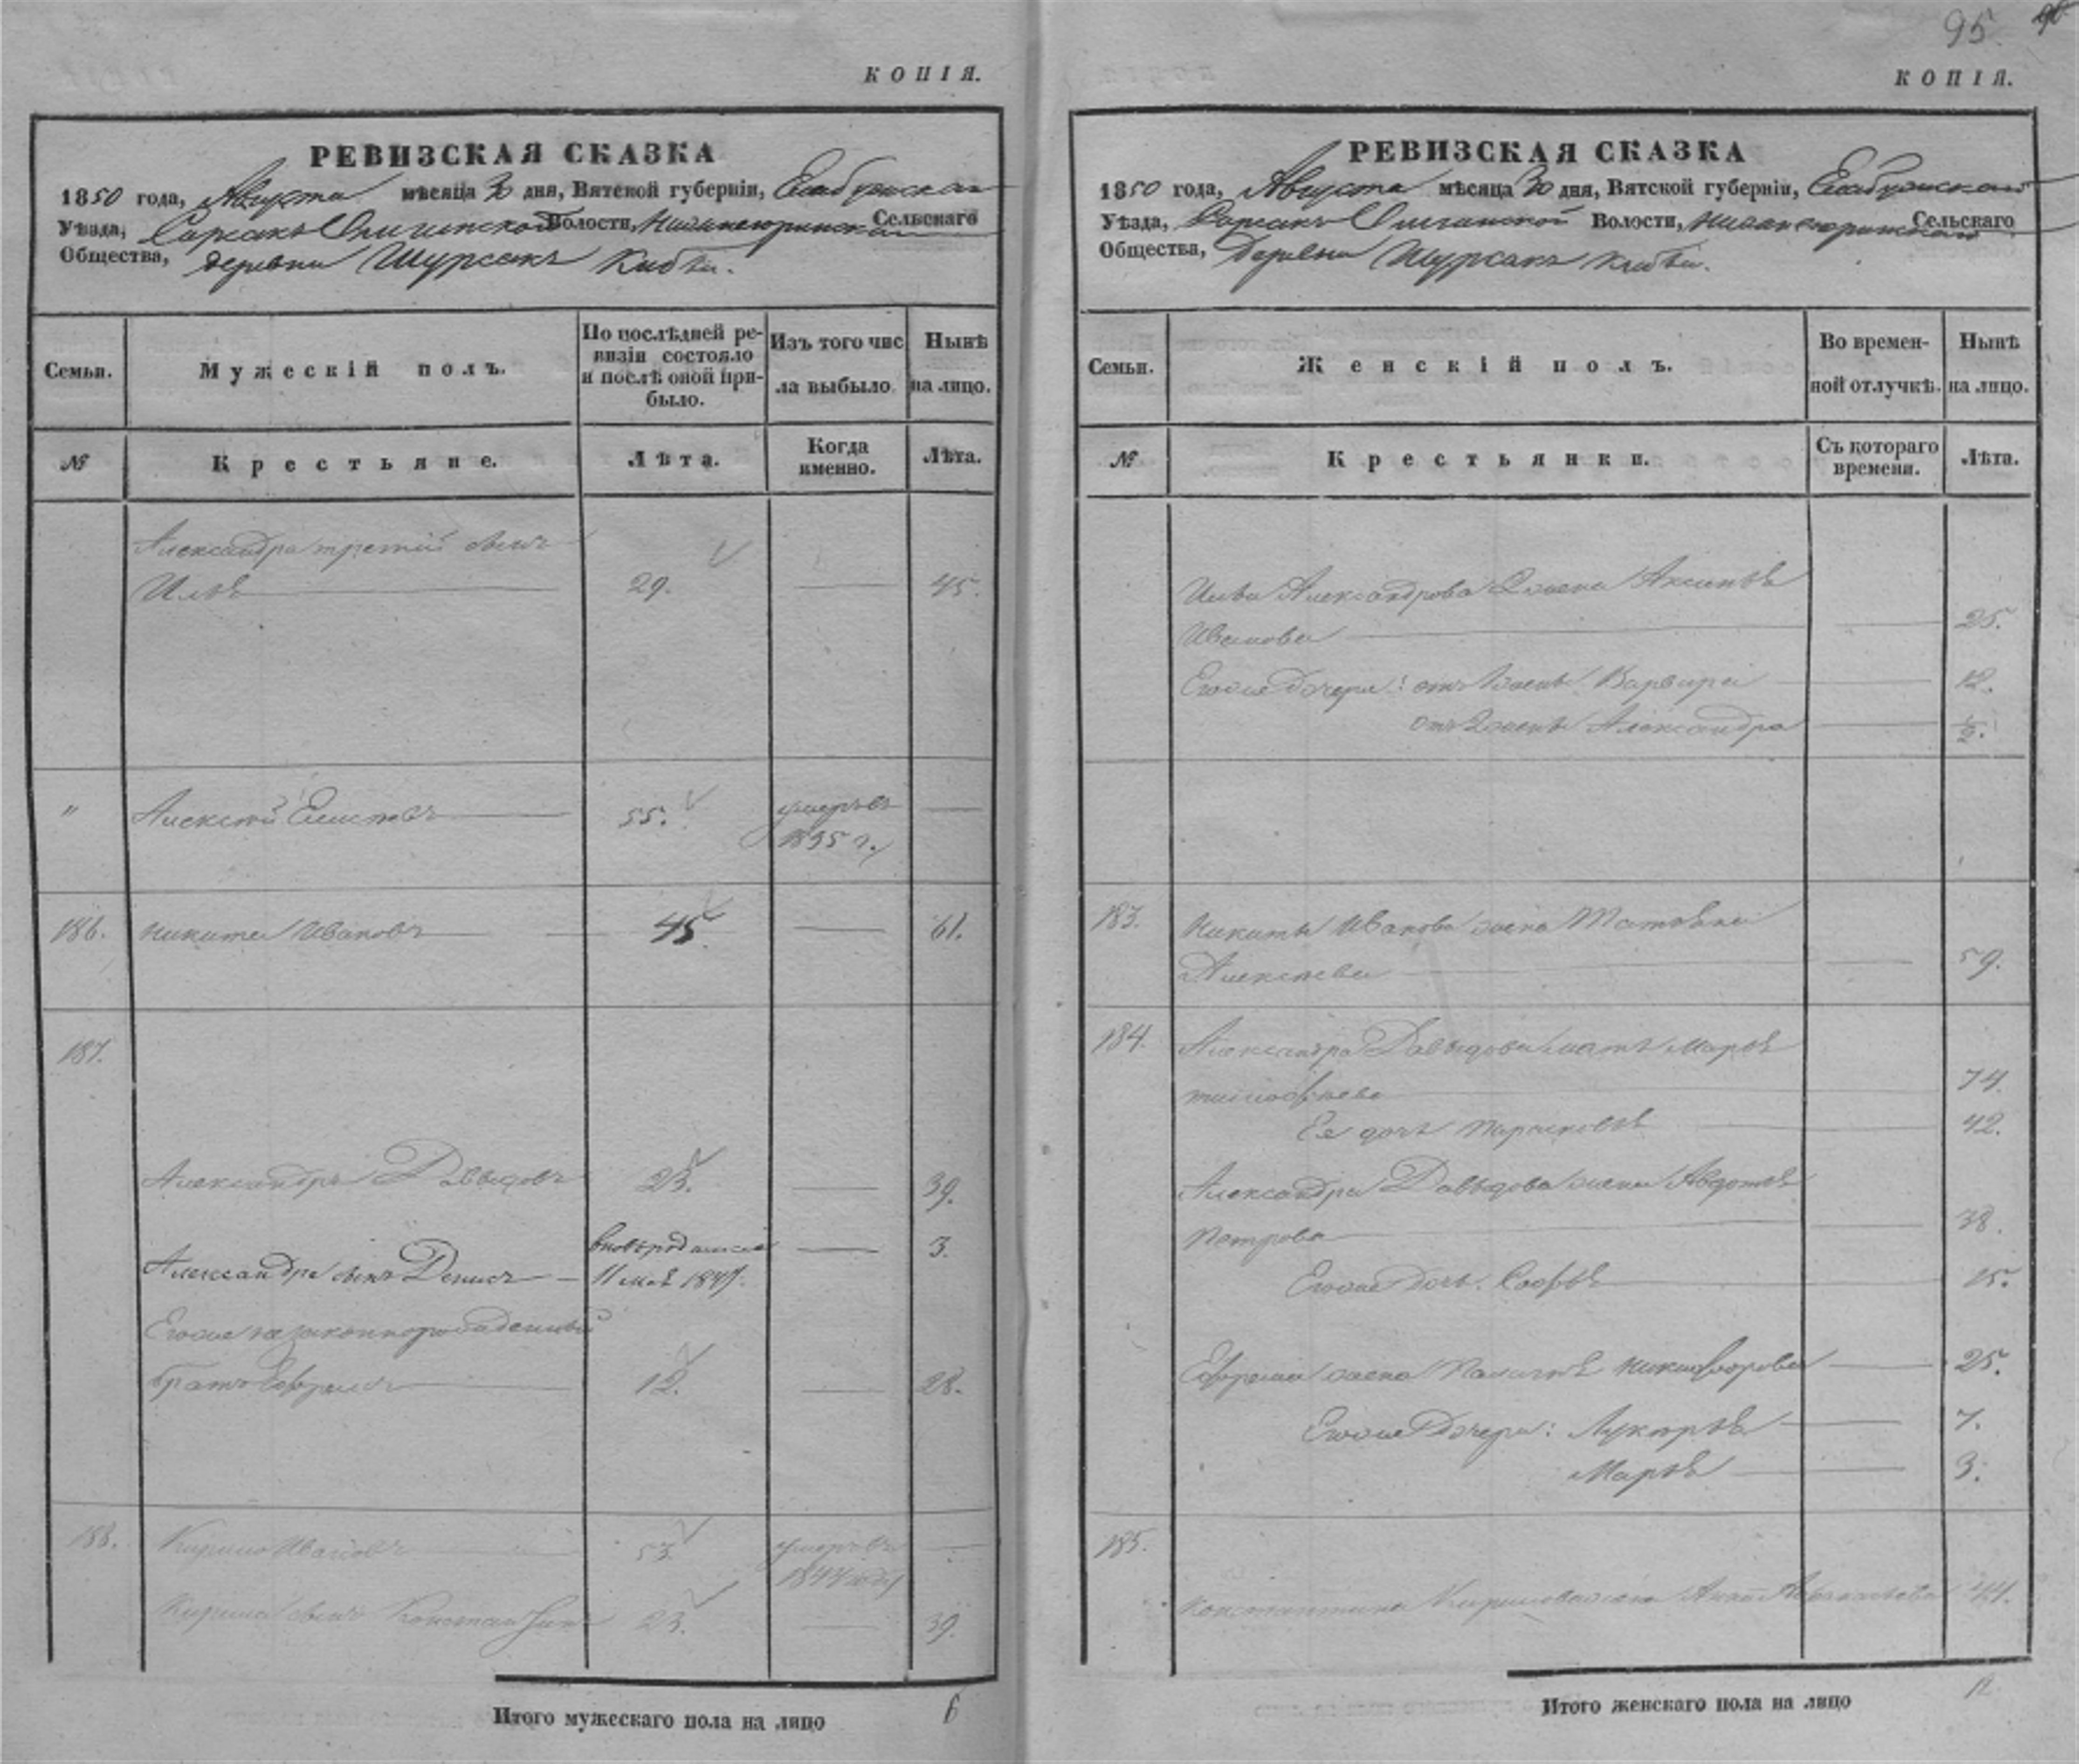 КОПІЯ.
РЕВИЗСКАЯ СКАЗКА
1850 года, Августа мѣсяца 30 дня, Вятской губерніи, Елабужскаго
Уѣзда, Волости, Сельскаго
Общества, деревни Шурсакъ
Семьи.
Мужескій полъ.
По послѣдней ре-
визіи состояло
и послѣ оной при-
было.
Изъ того чис
ла выбыло.
Нынѣ
на лицо.
№
Крестьяне.
Лѣта.
Когда
именно.
Лѣта.
Александра третій сынъ
Илья 29. 45.
" Алексѣй 55. умеръ въ
1835 г.
186. Никита Ивановъ 45. 61.
187.
Александръ Давыдовъ 23. 39.
вновь рожденный 3.
Александра сынъ Денисъ 11 мая 1847.
Егоже незаконнорожденный
братъ Ефремъ 12. 28.
188. Кирило Ивановъ 53. умеръ въ
1844 году
Кирила сынъ Константинъ 23. 39.
Итого мужескаго пола на лицо 6
95.
КОПІЯ.
РЕВИЗСКАЯ СКАЗКА
1850 года, Августа мѣсяца 30 дня, Вятской губерніи, Елабужскаго
Уѣзда, Волости, Сельскаго
Общества, Деревни Шурсакъ
Семьи.
Женскій полъ.
Во времен-
ной отлучкѣ.
Нынѣ
на лицо.
№
Крестьянки.
Съ котораго
времени.
Лѣта.
Ильи Александрова 2 жена
Иванова 25.
Егоже Дочери: отъ 1 жены Варвара 12.
отъ 2 жены Александра 1/2.
183. Никиты Иванова жена
Алексѣева 59.
184. Александра Давыдова мать Марья
Тимофѣева 74.
Ея дочь Парасковья 42.
Александра Давыдова жена Авдотья
Петрова 38.
Егоже Дочь Софья 15.
Ефрема жена Никифорова 25.
Егоже Дочери: Лукерья 7.
Марья 3.
185.
Константина Кирилова жена 44.
Итого женскаго пола на лицо 12